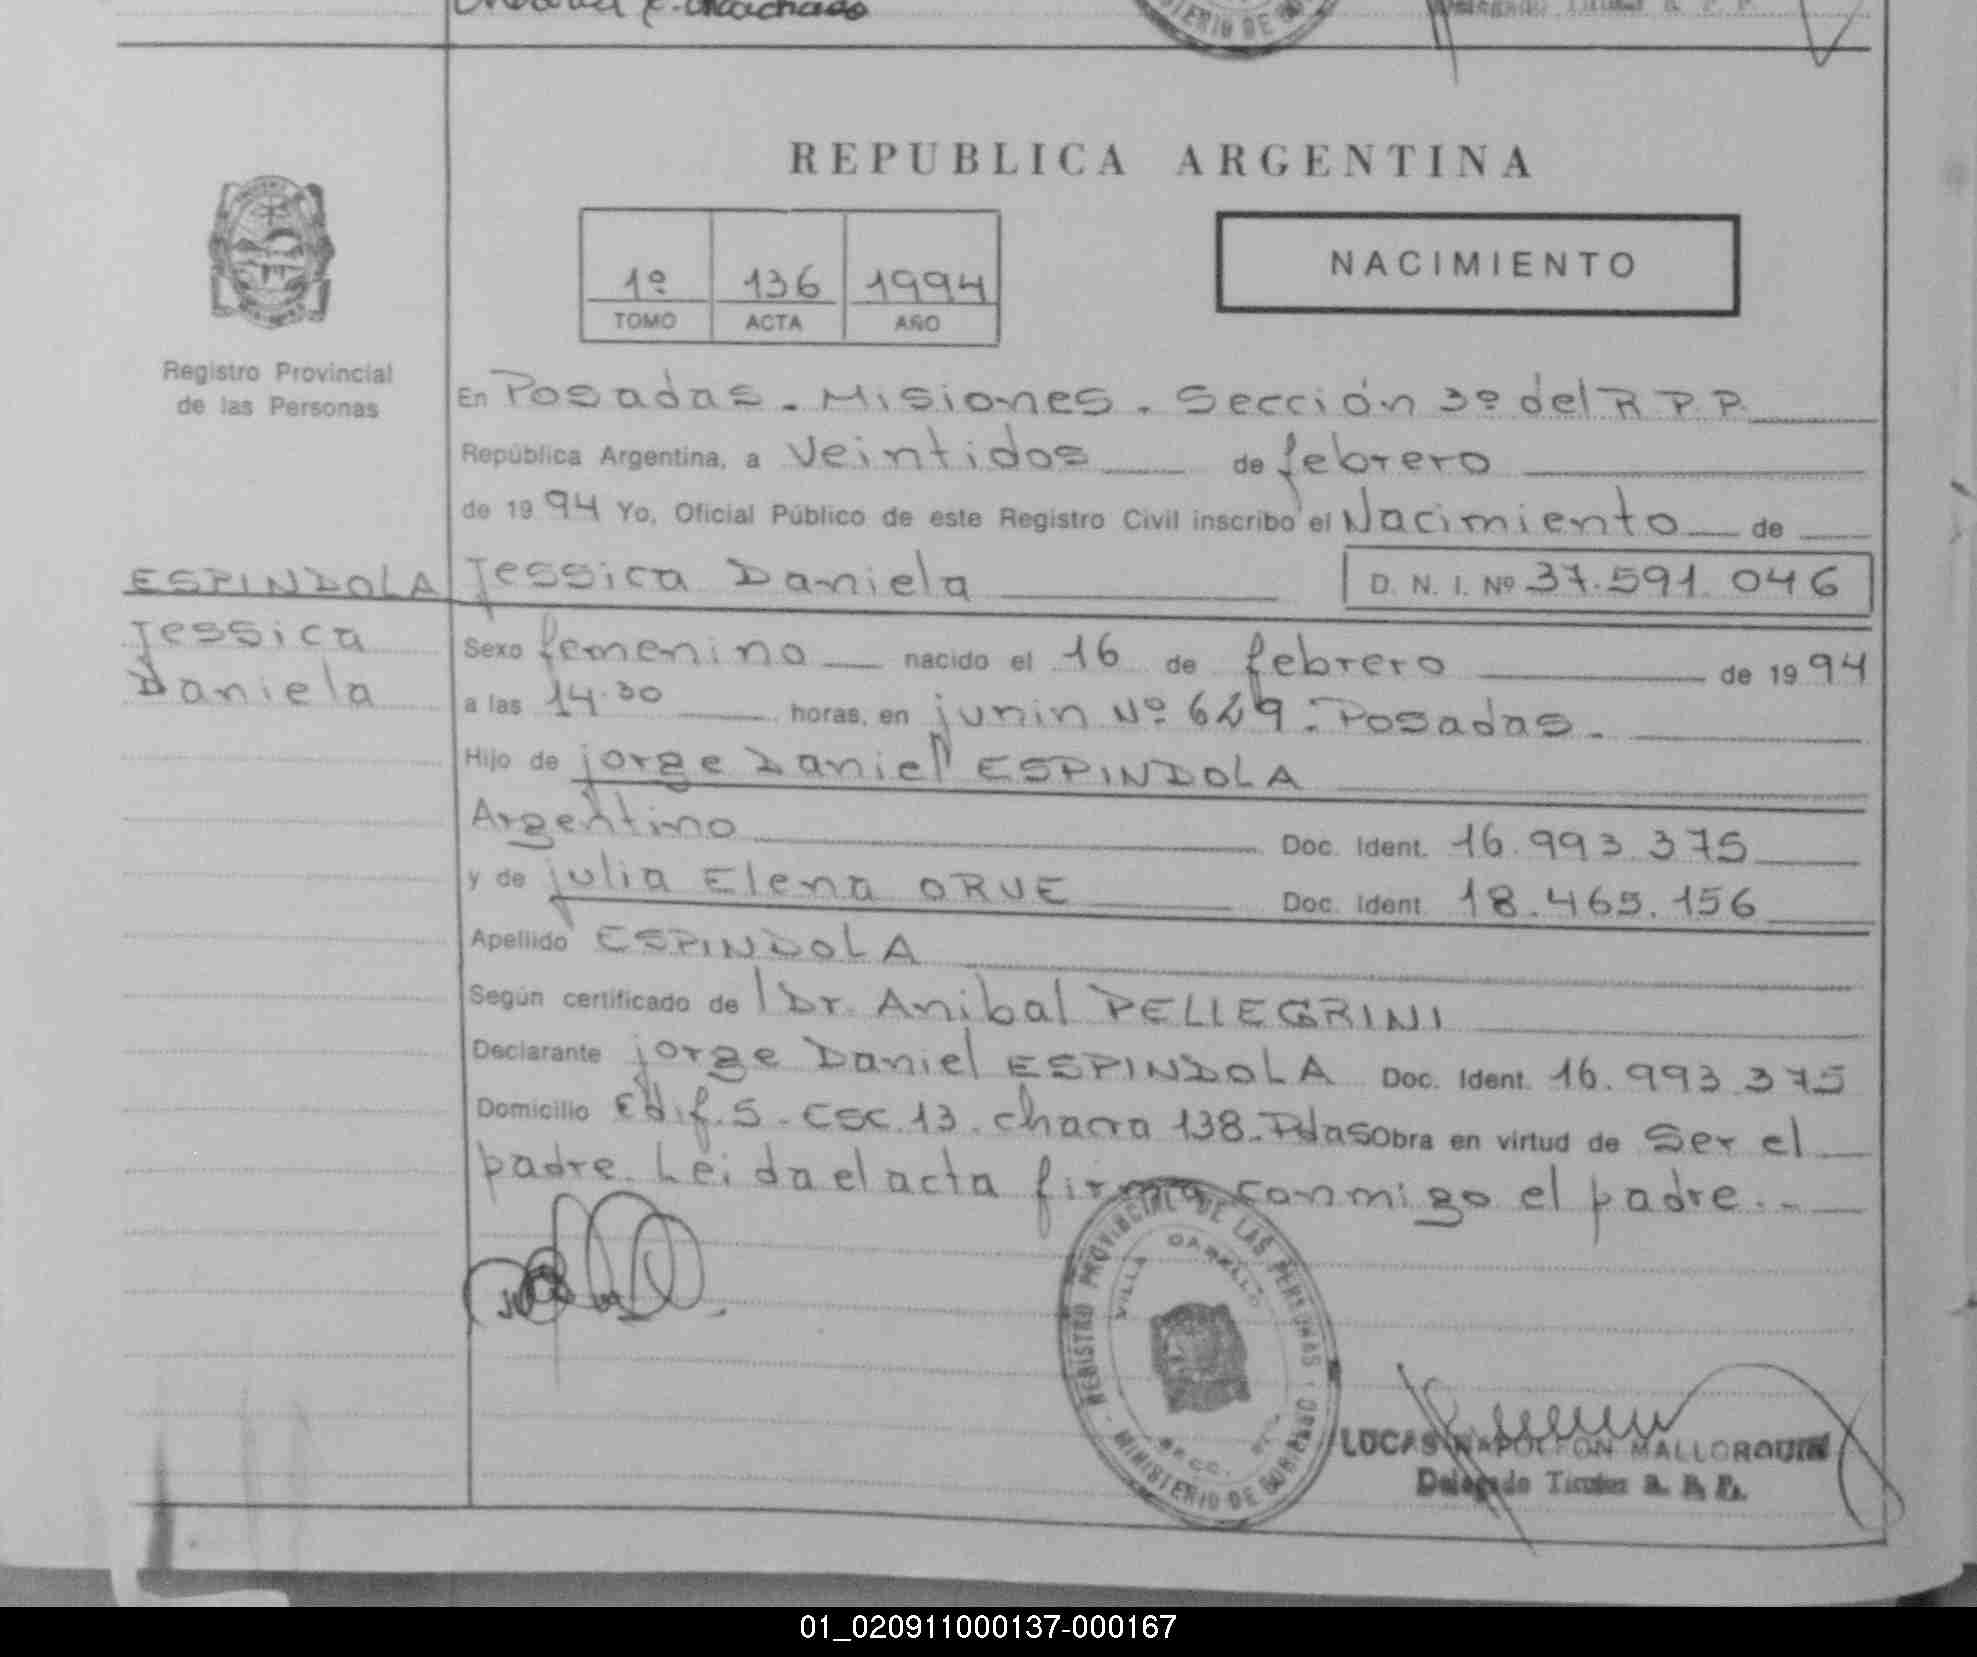 Machado
REPUBLICA ARGENTINA
NACIMIENTO
1º 136 1994
TOMO ACTA AÑO
Registro Provincial
de las Personas
En Posadas - Misiones - Sección 3º del R P P.
República Argentina, a Veintidos de febrero
de 1994 Yo, Oficial Público de este Registro Civil inscribo el Nacimiento de
ESPINDOLA Jessica Daniela D. N. I. Nº 37.591.046
Jessica
Daniela
Sexo femenino nacido el 16 de febrero de 1994
a las 14.30 horas, en junin Nº 629 - Posadas -
Hijo de jorge Daniel ESPINDOLA
Argentino Doc. Ident. 16.993.375
y de julia Elena ORUE Doc. Ident. 18.465.156
Apellido ESPINDOLA
Según certificado de Dr. Anibal PELLEGRINI
Declarante jorge Daniel ESPINDOLA Doc. Ident. 16.993.375
Domicilio Edif. 5 - Esc. 13 - chacra 138 - Pdas Obra en virtud de Ser el
padre. Leida el acta firma conmigo el padre. -
REGISTRO PROVINCIAL DE LAS PERSONAS
MINISTERIO DE GOBIERNO
VILLA
LUCAS NAPOLEON MALLORQUIN
Delegado Titular R. P. P.
01_020911000137-000167